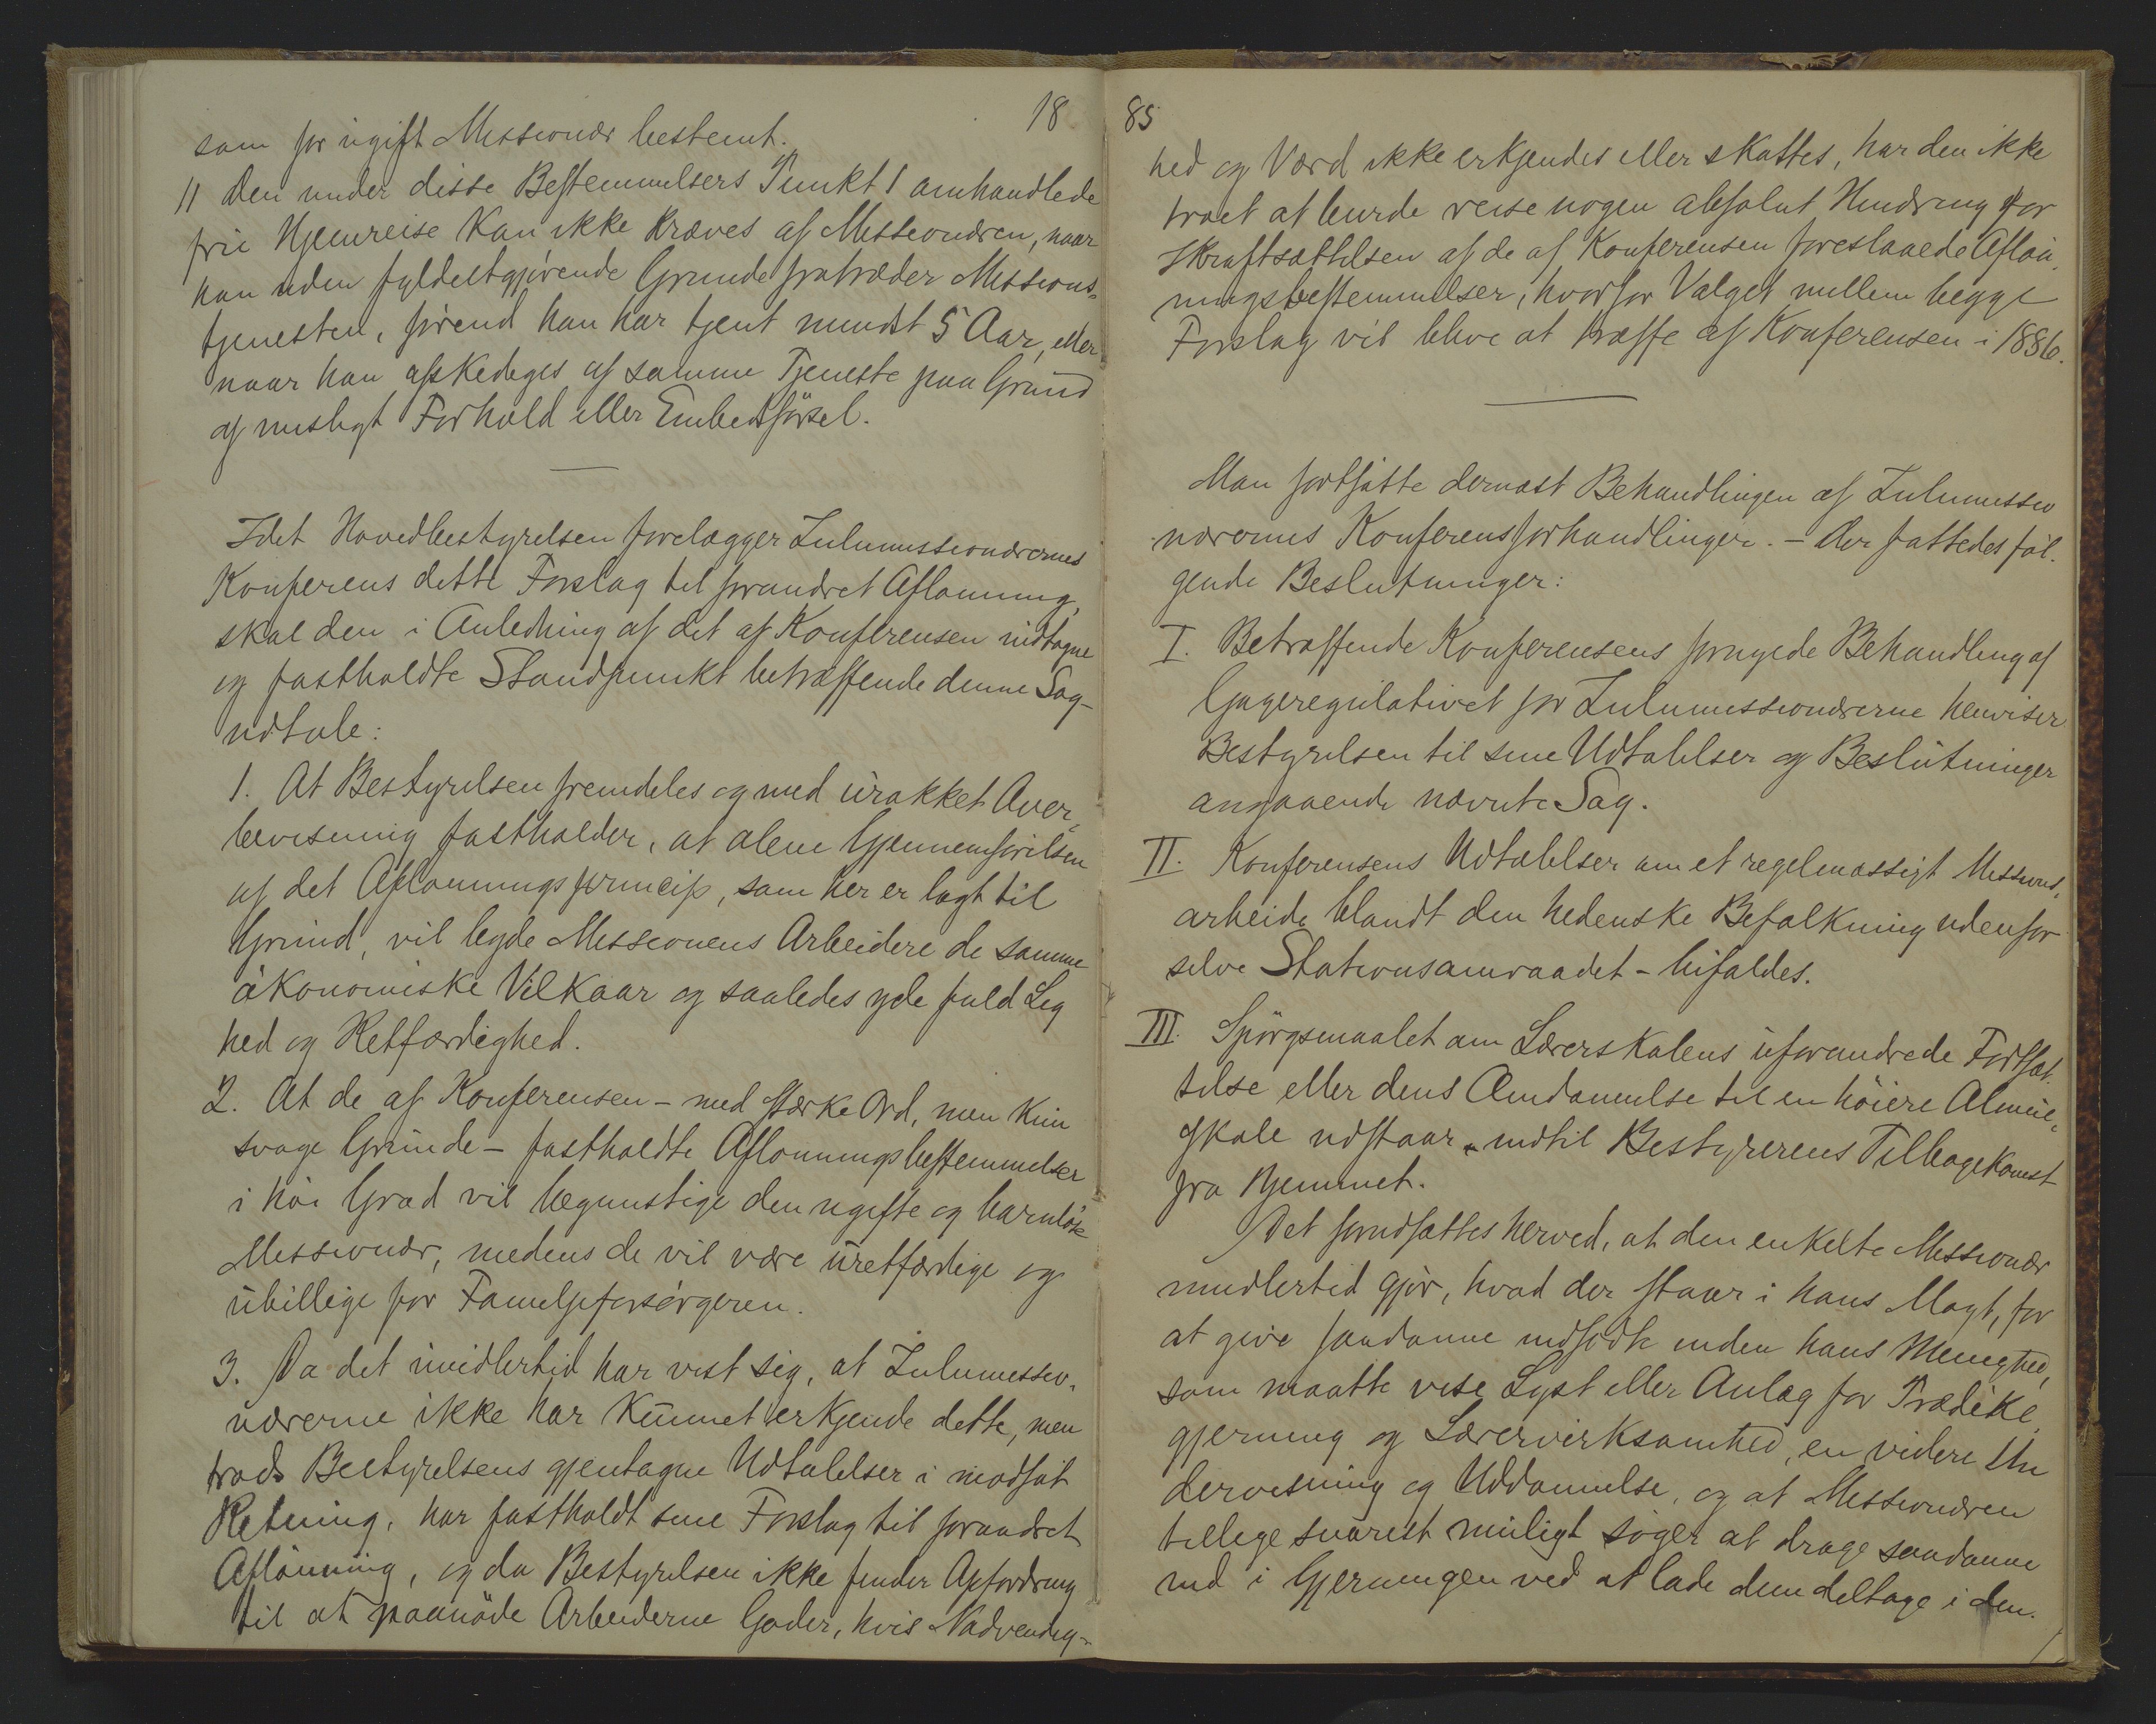 18
som for ugift Missionær bestemt.
11 Den under disse Bestemmelsers Punkt 1 omhandlede
frie Hjemreise kan ikke kræves af Missionæren, naar
han uden fyldestgjørende Grunde fratræder Missions-
tjenesten, førend han har tjent mindst 5 Aar, eller
naar han afskediges af samme Tjeneste paa Grund
af misligt Forhold eller Embedsførsel.
Idet Hovedbestyrelsen forelægger Zulumissionærernes
Konferens dette Forslag til forandret Aflønning,
skal den i Anledning af det af Konferensen indtagne
og fastholdte Standpunkt betræffende denne Sag
udtale:
1. At Bestyrelsen fremdeles og med urokket Over-
bevisning fastholder, at alene Gjennemførelsen
af det Aflønningsprincip, som her er lagt til
Grund, vil byde Missionens Arbeidere de samme
økonomiske Vilkaar og saaledes yde fuld Lig
hed og Retfærdighed.
2. At de af Konferensen – med stærke Ord, men kun
svage Grunde – fastholdte Aflønningsbestemmelser
i høi Grad vil begunstige den ugifte og barnløse
Missionær, medens de vil være uretfærdige og
ubillige for Familjeforsørgeren.
3. Da det imidlertid har vist sig, at Zulumissio-
nærerne ikke har kunnet erkjende dette, men
trods Bestyrelsens gjentagne Udtalelser i modsat
Retning, har fastholdt sine Forslag til forandret
Aflønning, og da Bestyrelsen ikke finder Opfordring
til at paanøde Arbeiderne Goder, hvis Nødvendig-
85
hed og Værd ikke erkjendes eller skattes, har den ikke
troet at burde reise nogen absolut Hindring for
Ikraftsættelsen af de af Konferensen foreslaaede Afløn-
ningsbestemmelser, hvorfor Valget mellem begge
Forslag vil blive at træffe af Konferensen i 1886.
Man fortsatte dernæst Behandlingen af Zulumissio
nærernes Konferensforhandlinger. – Der fattedes føl-
gende Beslutninger:
I. Betræffende Konferensens fornyede Behandling af
Gageregulativet for Zulumissionærerne henviser
Bestyrelsen til sine Udtalelser og Beslutninger
angaaende nævnte Sag.
II. Konferensens Udtalelser om et regelmæssigt Missions-
arbeide blandt den hedenske Befolkning udenfor
selve Stationsomraadet – bifaldes.
III. Spørgsmaalet om Lærerskolens uforandrede Fortsæt-
telse eller dens Omdannelse til en høiere Almue-
skole udstaar indtil Bestyrerens Tilbagekomst
fra Hjemmet.
Det forudsættes herved, at den enkelte Missionær
imidlertid gjør, hvad der staar i hans Magt, for
at give saadanne indfødte inden hans Menighed,
som maatte vise Lyst eller Anlæg for Prædike-
gjerning og Lærervirksomhed, en videre Un
dervisning og Uddannelse, og at Missionæren
tillige snarest muligt søger at drage saadanne
ind i Gjerningen ved at lade dem deltage i den.